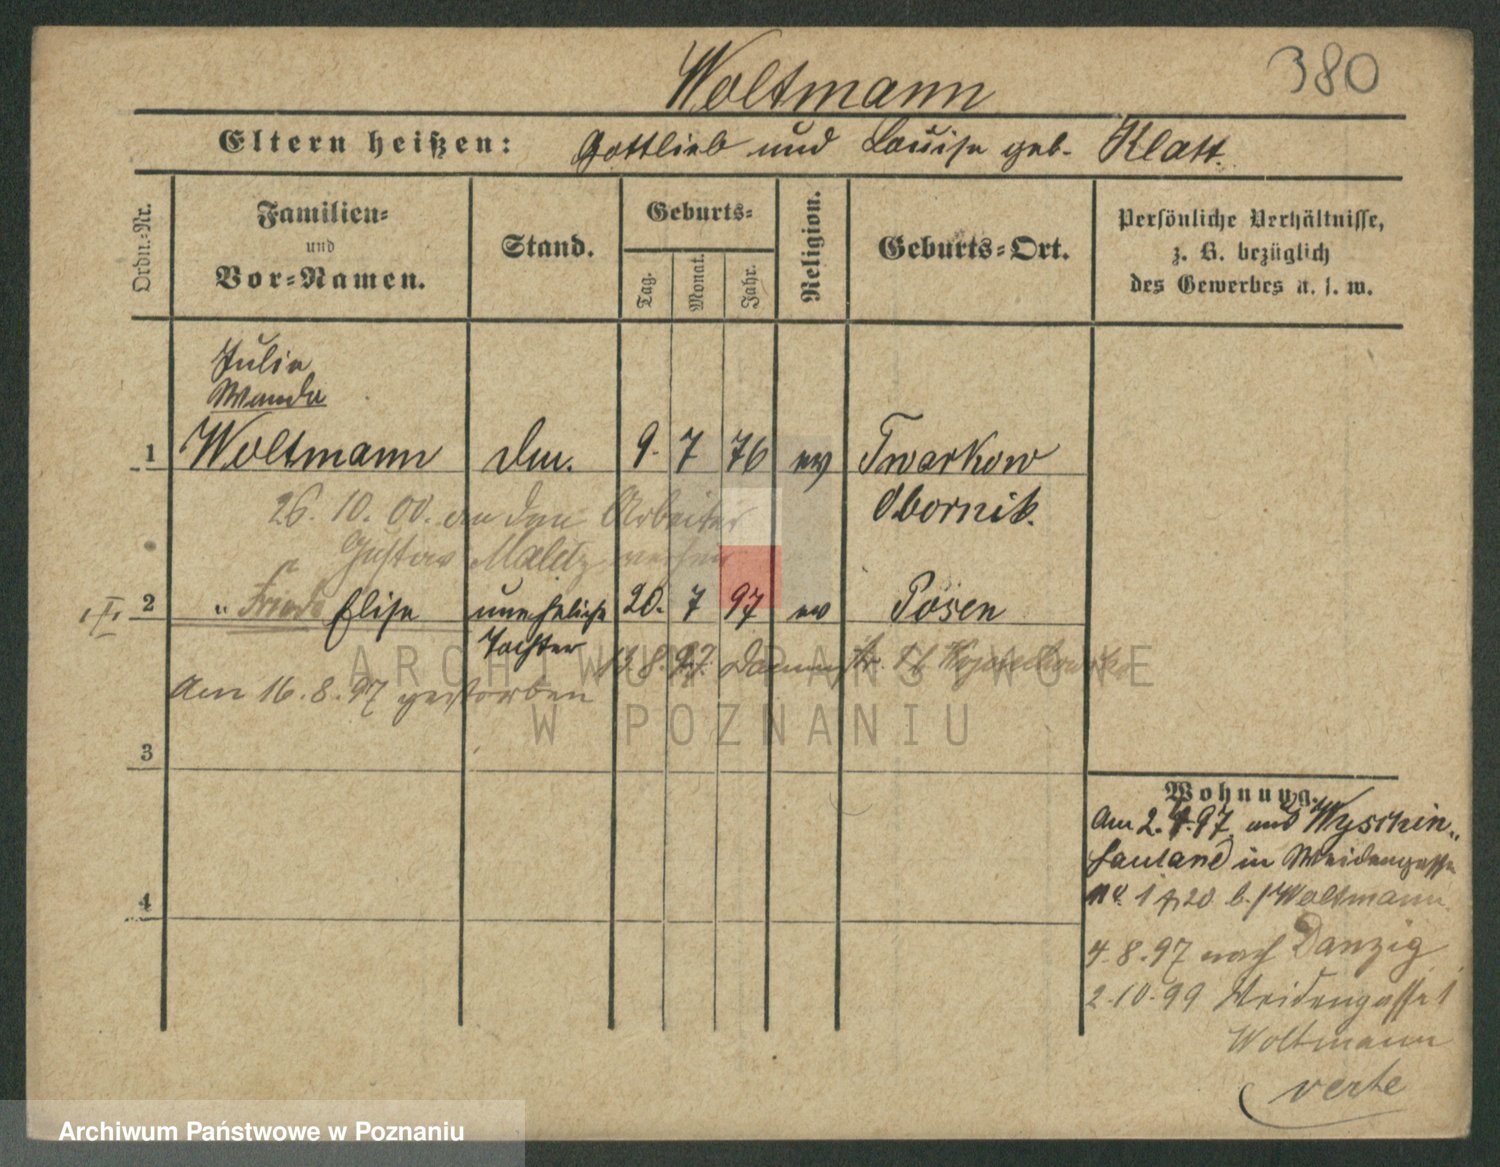 380
Woltmann
Eltern heißen: Gottlieb und Louise geb. Klatt.
Ordn.-Nr.
Familien-
und
Vor-Namen.
Stand.
Geburts-
Tag.
Monat.
Jahr.
Religion.
Geburts-Ort.
Persönliche Verhältnisse,
z. B. bezüglich
des Gewerbes u. s. w.
Julie
Wanda
1 Woltmann 9. 7 76 ev Twarkow
Obornik.
26. 10. 00. an den Arbeiter
Gustav
2 " Frieda Elise uneheliche 20. 7 97 ev Posen
Tochter
13.8.97.
Am 16.8.97 gestorben
3
4
Wohnung.
Am 2.4.97. aus
Hauland in Weidengasse
No. 1 b./Woltmann.
4.8.97 nach Danzig
2.10.99 Weidengasse 1
Woltmann
verte
ARCHIWUM PAŃSTWOWE
W POZNANIU
Archiwum Państwowe w Poznaniu